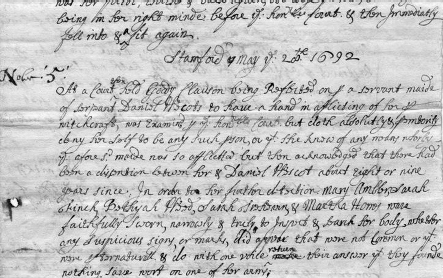 being in her right minde before ye honble Court. & then Immediatly
fell into a fit again.
Stamford May ye 28th 1692
Nober 5
At a Court held Goody Clauson being by a servant maide
of sergant Daniel Wescots to have a hand in afflicting of her by
witchcraft, was Examined by ye honble Court. but doth absolutly & peremtorily
deny her self to be any such person, or yt she knew of any means whereby
ye afore sd maide was so afflicted but then acknowledged that there had
been a difference between her & Daniel Wescot about eight or nine
years since. In order to further detection mary Ambler Sarah
Finch Bethyah Weed, Sarah & Martha Homs were
faithfully sworn, narrowly & truly to Inspect & search her body, whether
any suspicious signs or marks, did appear that were not Common or yt
were preternaturall & do with one voice return their answer yt they found
nothing save wart on one of her arms